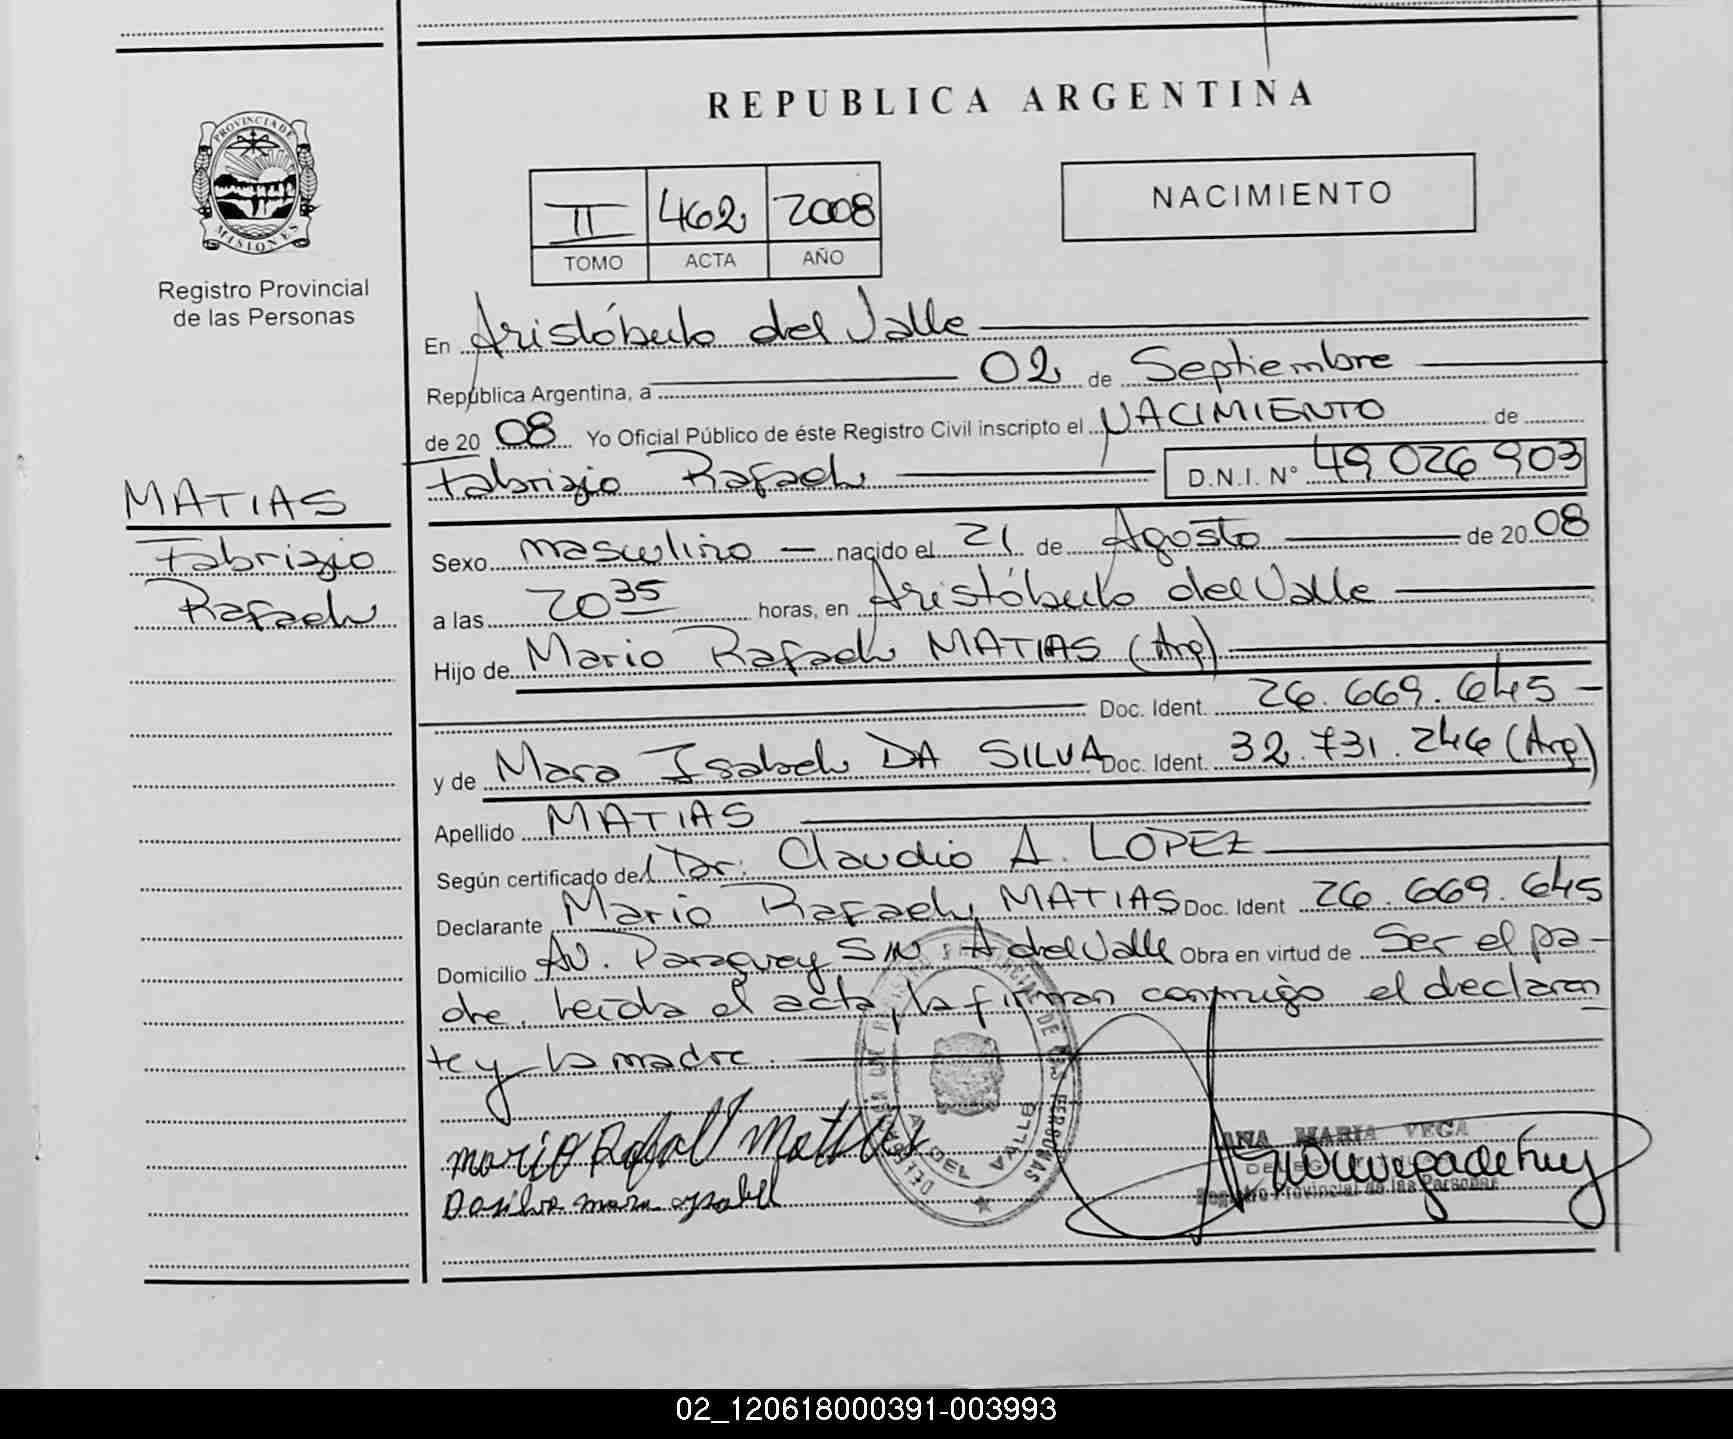 REPUBLICA ARGENTINA
PROVINCIA DE MISIONES
Registro Provincial
de las Personas
II 462 2008
TOMO ACTA AÑO
NACIMIENTO
En Aristóbulo del Valle
República Argentina, a 02 de Septiembre
de 20 08 Yo Oficial Público de éste Registro Civil inscripto el NACIMIENTO de
Fabrizio Rafael D.N.I. N° 49 026 903
MATIAS
Fabrizio
Rafael
Sexo masculino nacido el 21 de Agosto de 20 08
a las 20 35 horas, en Aristóbulo del Valle
Hijo de Mario Rafael MATIAS (Arg)
Doc. Ident. 26.669.645
y de Mara Isabel DA SILVA Doc. Ident. 32.731.246 (Arg)
Apellido MATIAS
Según certificado del Dr. Claudio A. LOPEZ
Declarante Mario Rafael MATIAS Doc. Ident 26.669.645
Domicilio Av. Paraguay S/N A del Valle Obra en virtud de Ser el pa-
dre. Leída el acta, la firman conmigo el declaran
te y la madre.
Mario Rafael Matias
Da silva mara ysabel
ANA MARIA VEGA
Registro Provincial de las Personas
A. DEL VALLE
02_120618000391-003993